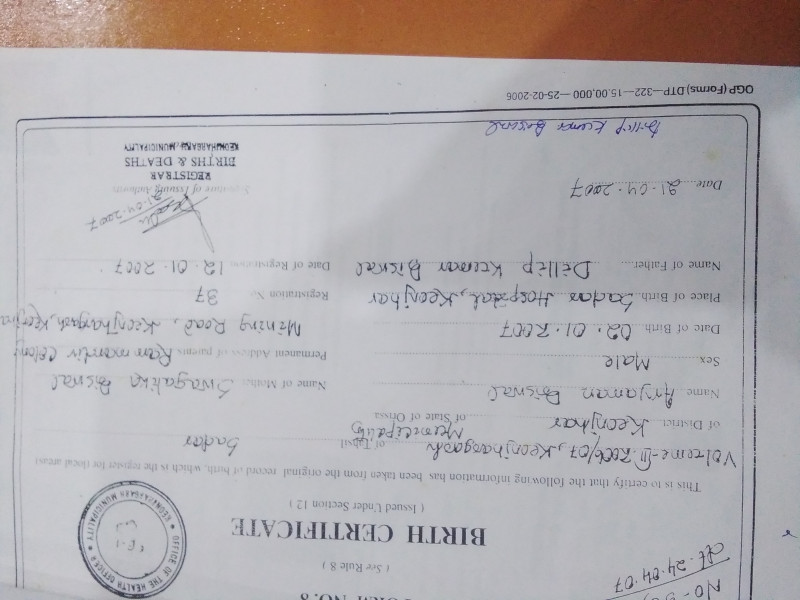 FORM NO. 8
( See Rule 8 )
BIRTH CERTIFICATE
( Issued Under Section 12 )
OFFICE OF THE HEALTH OFFICER
KEONJHARGARH MUNICIPALITY
dt. 24.04.07
This is to certify that the following information has been taken from the original record of birth, which is the register for (local area)
Volume-III 2006/07, Keonjhargarh Municipality of Tahsil Sadar
of District Keonjhar of State of Orissa
Name Aryaman Biswal Name of Mother Swagatika Biswal
Sex Male Permanent Address of parents Ram mandir Colony
Mining Road, Keonjhargarh, Keonjhar
Date of Birth 02.01.2007
Place of Birth Sadar Hospital, Keonjhar Registration No. 37
Name of Father Dillip Kumar Biswal Date of Registration 12.01.2007
21.04.2007
Date 21.04.2007 Signature of Issuing Authority
REGISTRAR
BIRTHS & DEATHS
KEONJHARGARH MUNICIPALITY
Dillip Kumar Biswal
OGP (Forms) (DTP—322—15,00,000 —25-02-2006